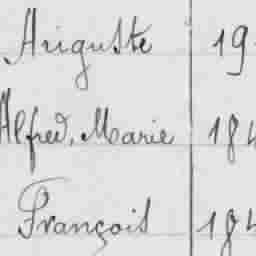 Auguste 19
Alfred, Marie 184
François 184